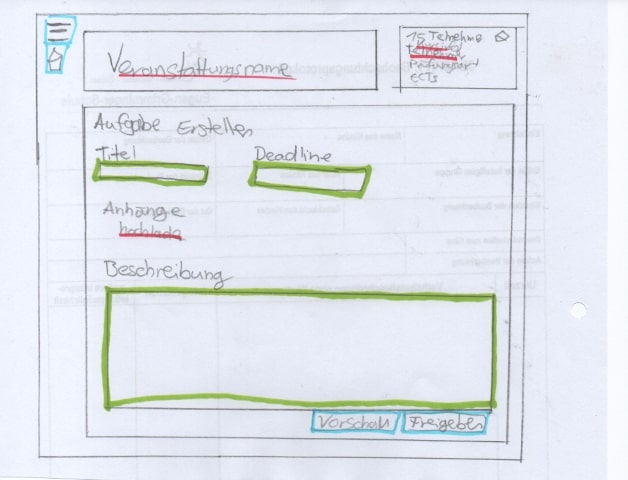 Veranstaltungsname
15 Teilnehme
Prüfungsart
ECTs
Aufgabe Erstellen
Titel
Deadline
Anhänge
hochlade
Beschreibung
Vorschau
Freigeben